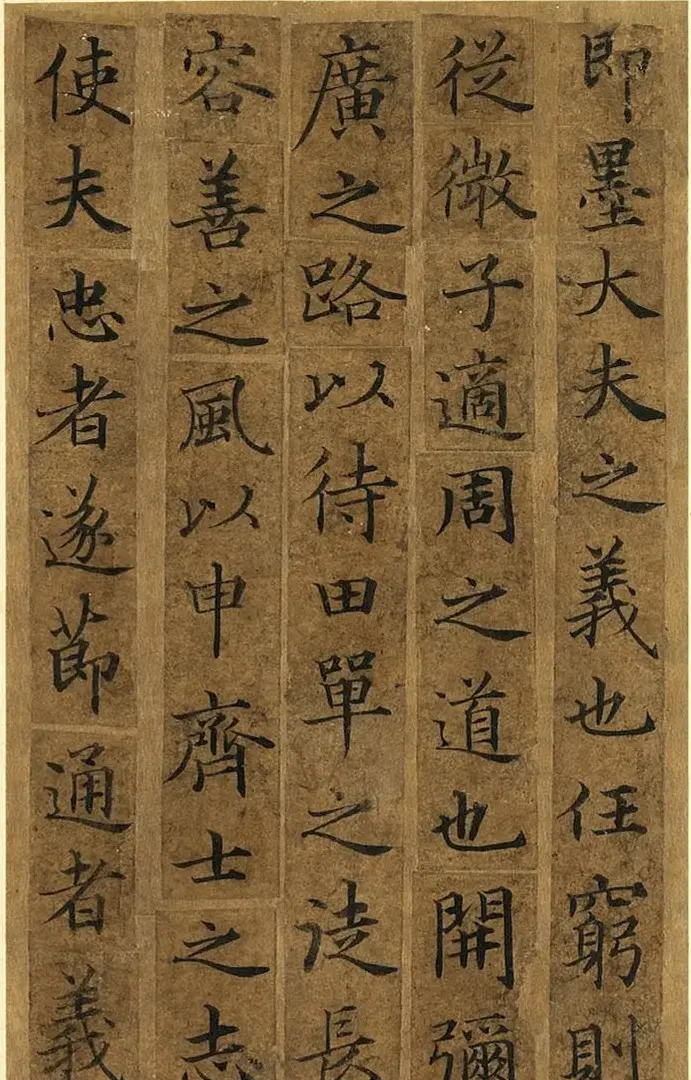 即墨大夫之義也任窮則
從微子適周之道也開彌
廣之路以待田單之徒長
容善之風以申齊士之志
使夫忠者遂節通者義